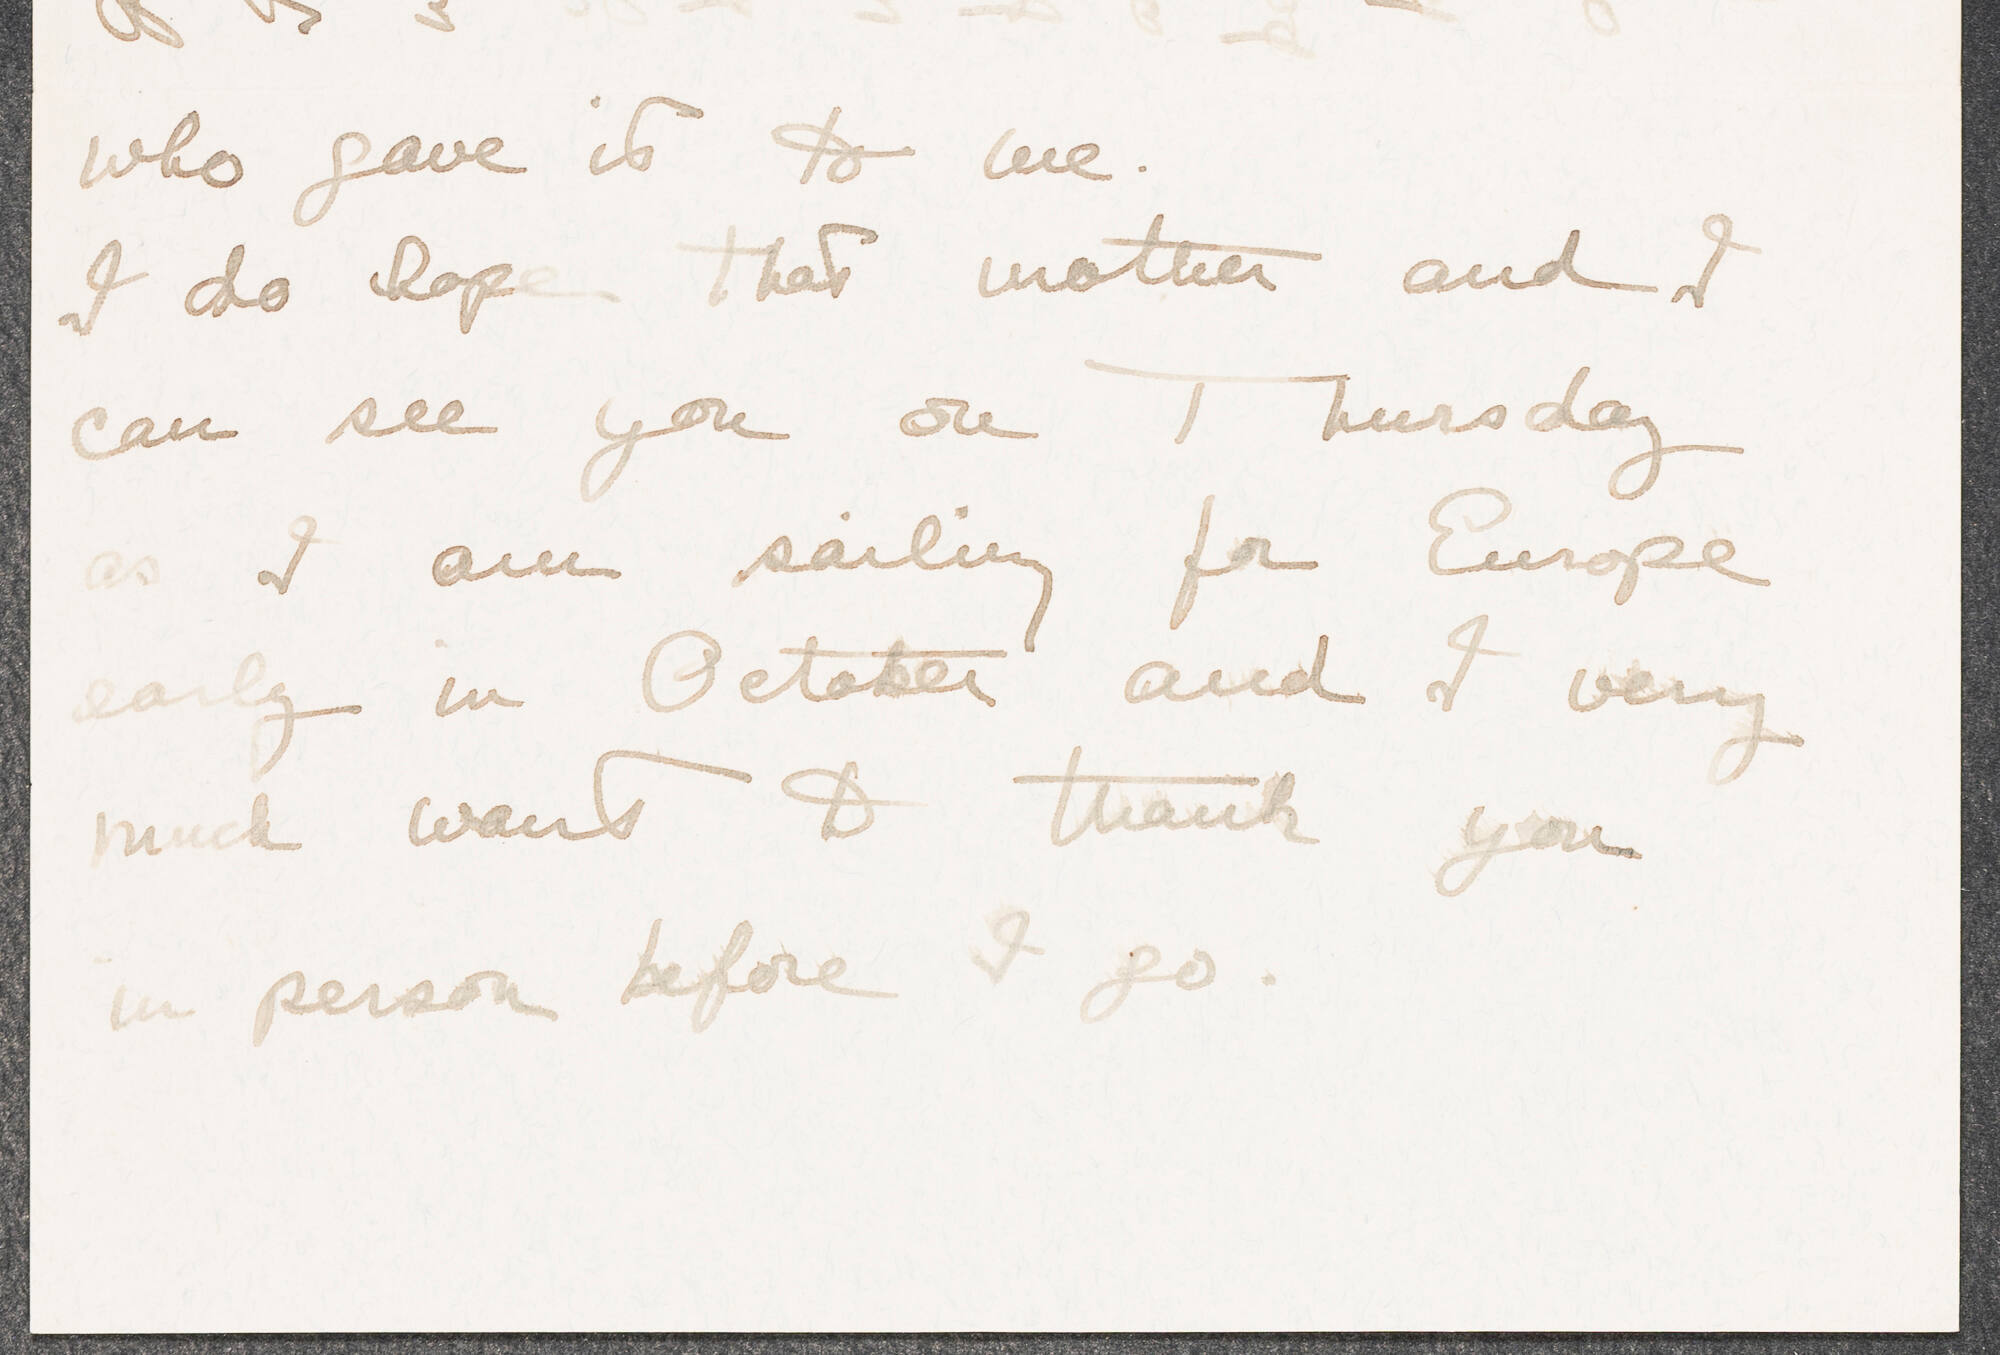 who gave it to me.
I do hope that mother and I
can see you on Thursday
as I am sailing for Europe
early in October and I very
much want to thank you
in person before I go.